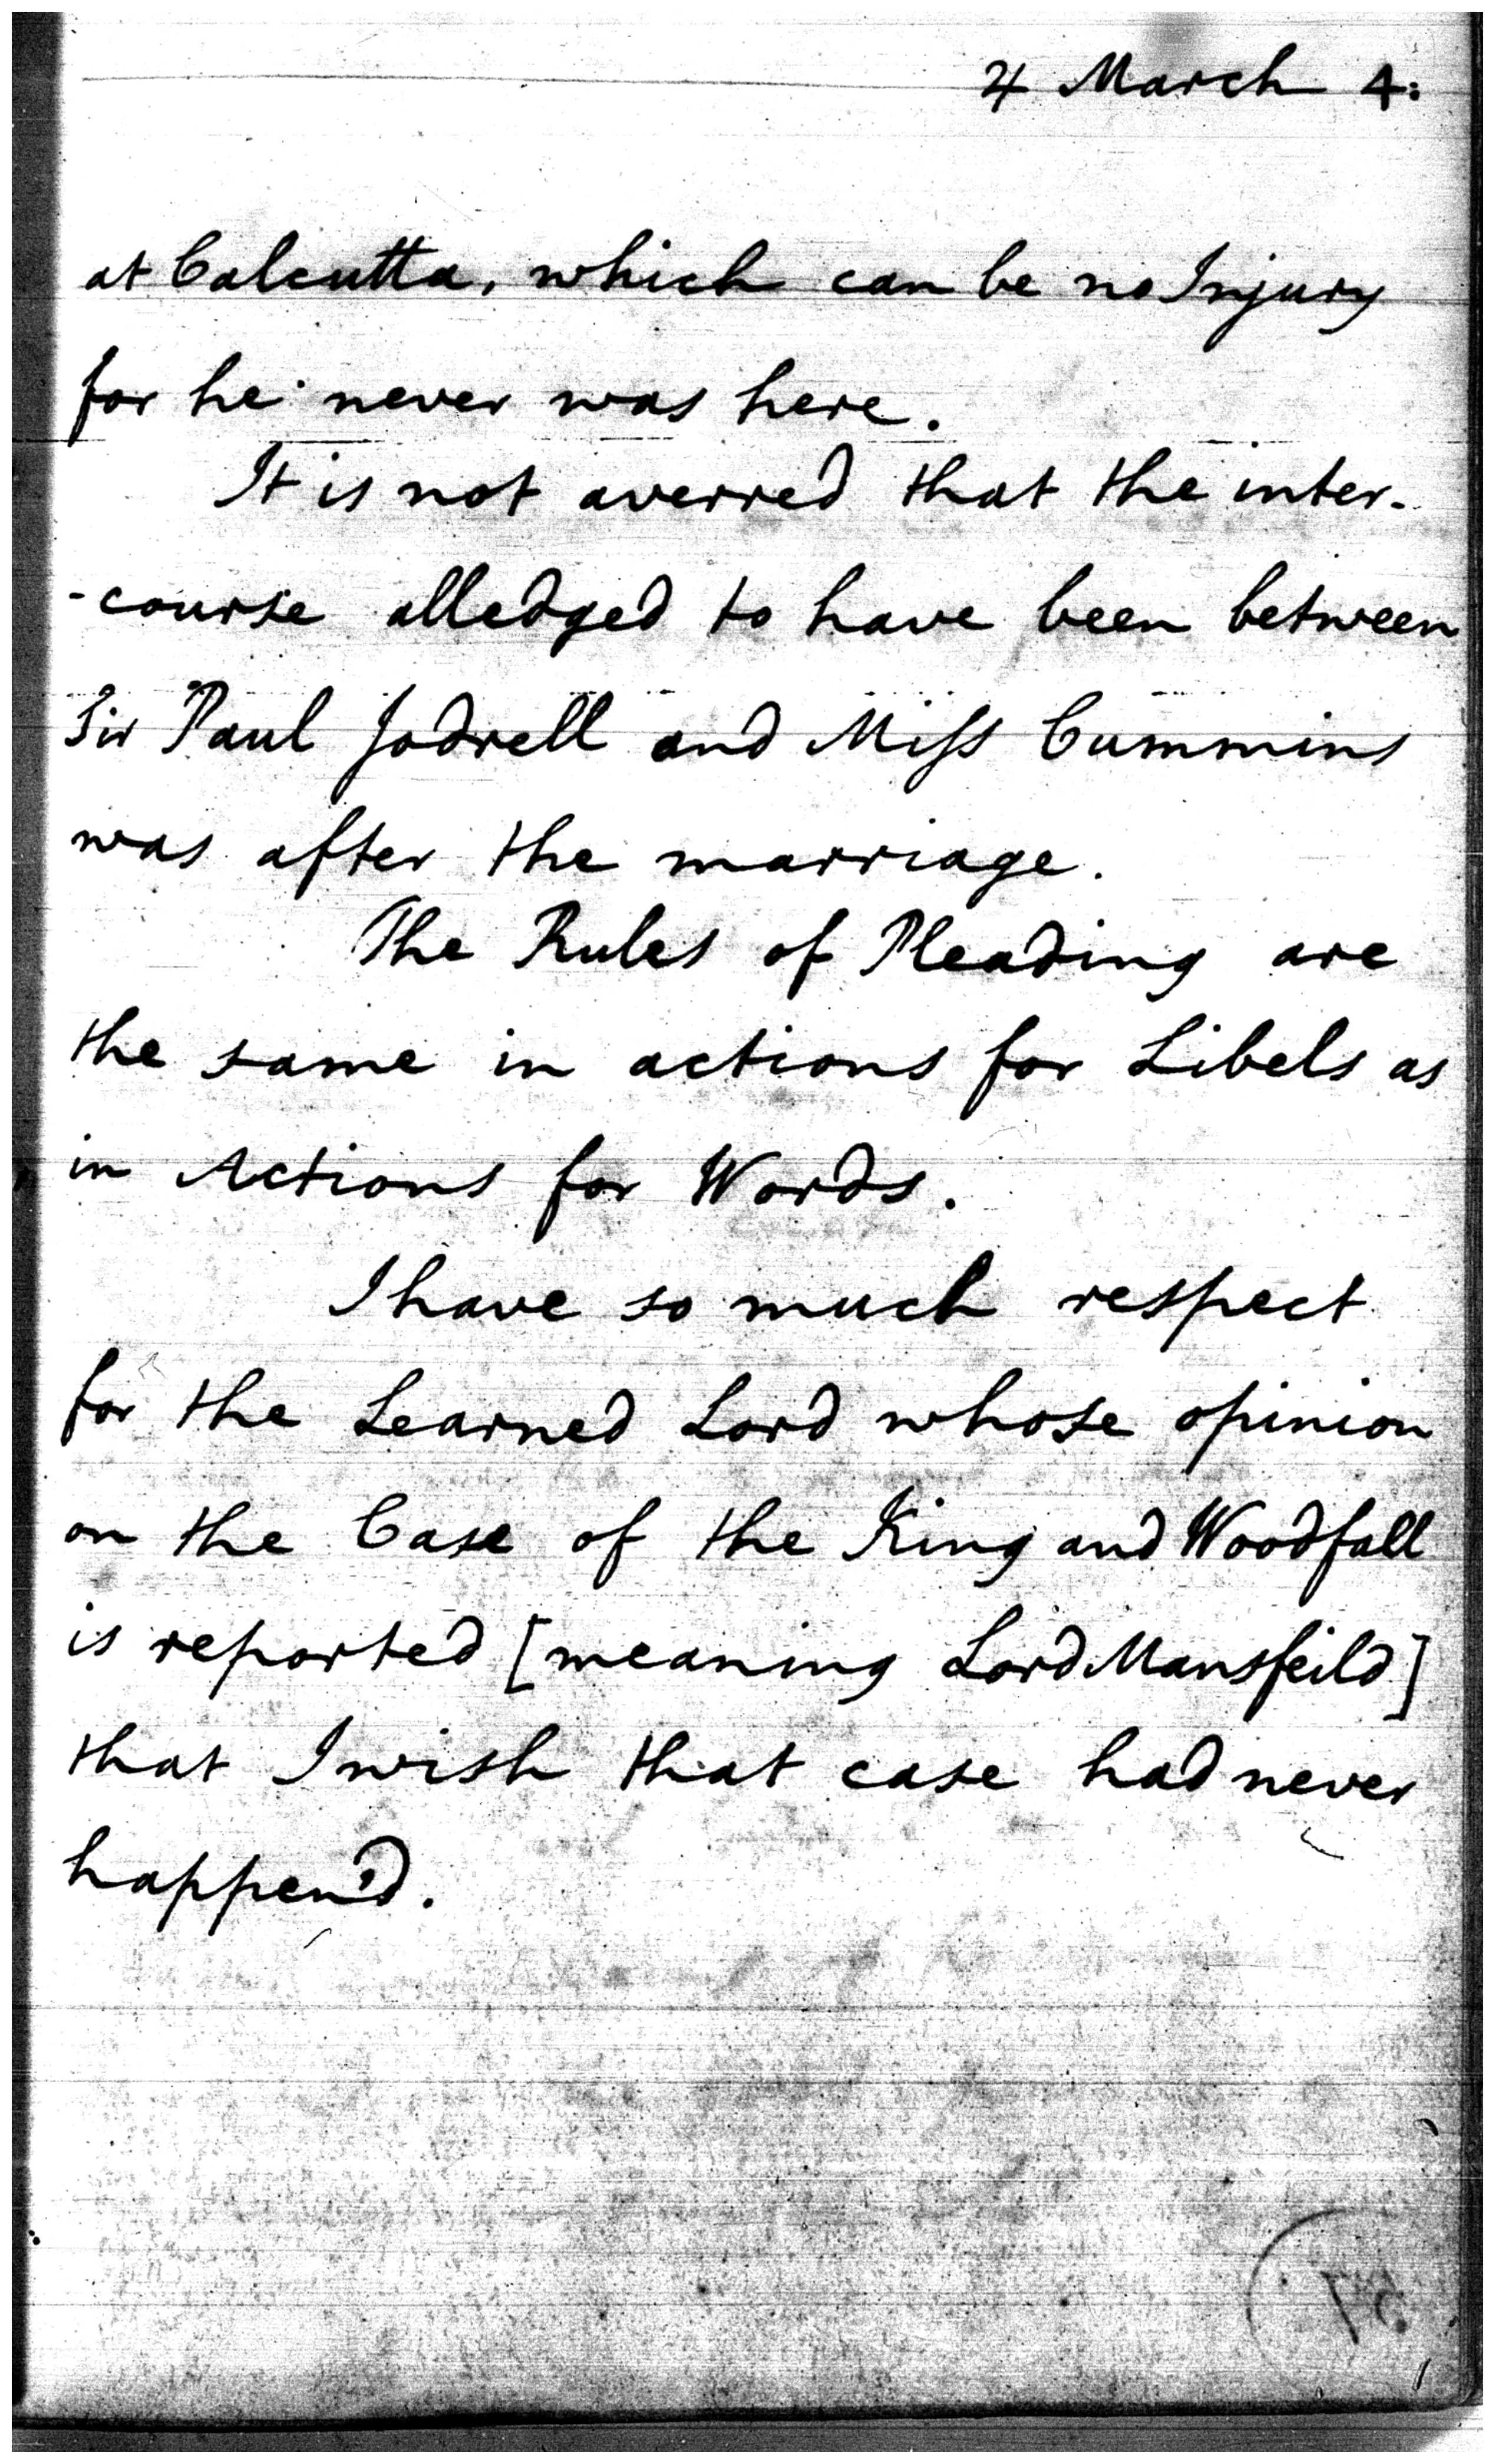 ♃ March 4:
at Calcutta, which can be no Injury
for he never was here.
It is not averred that the inter-
-course alledged to have been between
Sir Paul Jodrell and Miſs Cummins
was after the marriage.
The Rules of Pleading are
the same in actions for Libels as
in Actions for Words.
I have so much respect
for the Learned Lord whose opinion
on the Case of the King and Woodfall
is reported [meaning Lord Mansfeild]
that I wish that case had never
happen'd.